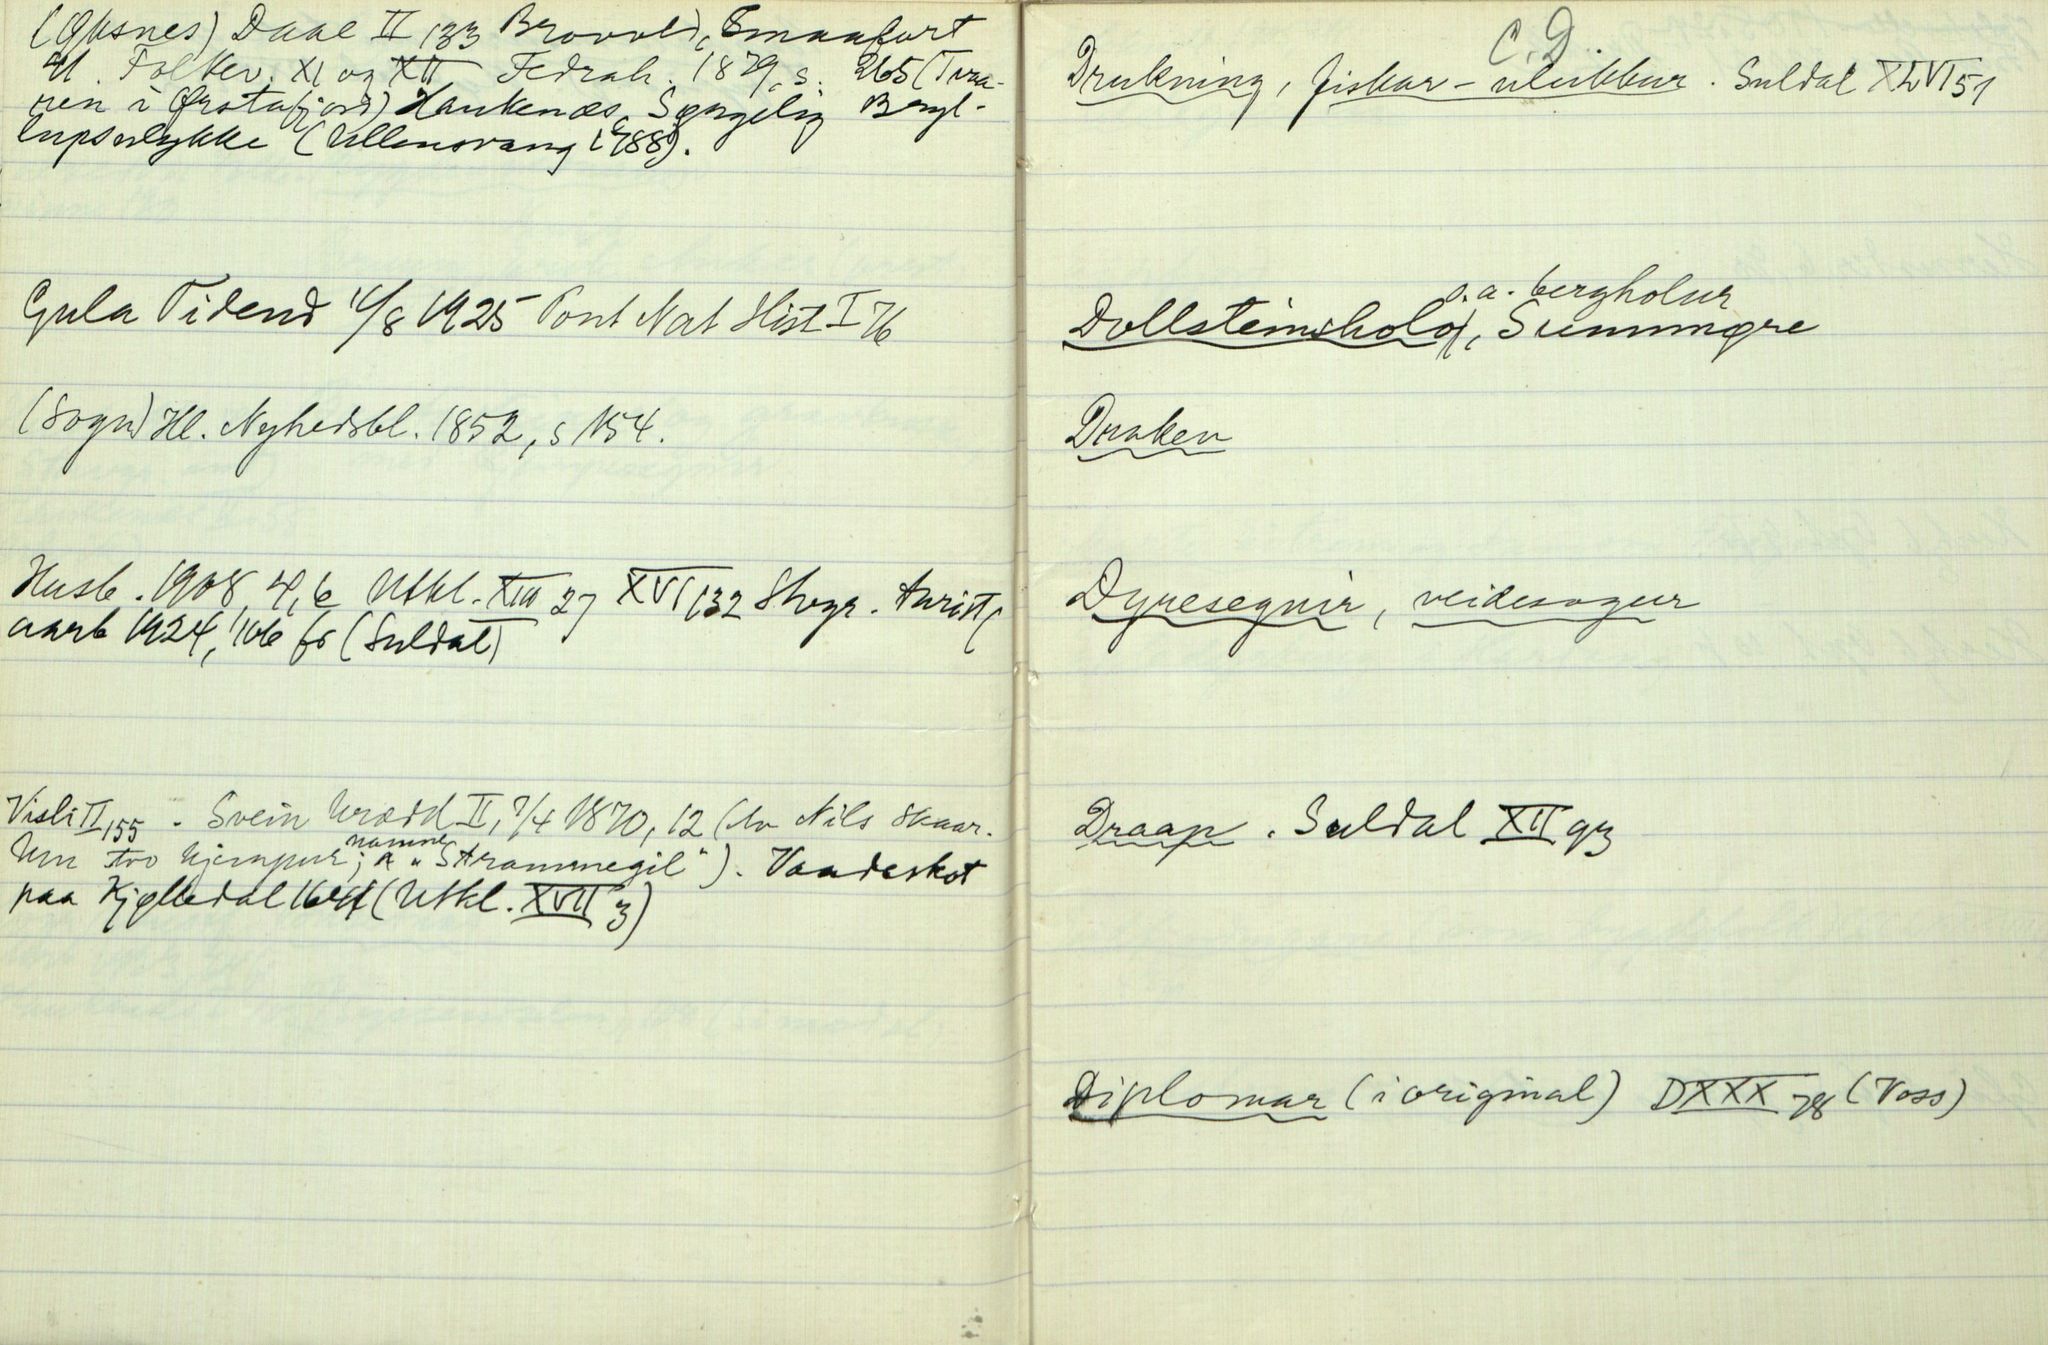 (Øksnes) Daae II 133 Brovold, Smaafort
Folkev. XI og XII Fedrah. 1879, s. 265 (Traa-
nen i Ørstafjord) Haukenæs, Sørgelig Bryl-
lupsulykke (Ullensvang 1988).
Gula Tidend 11/8 1925 Pont Nat Hist I 76
(Sogn) Ill. Nyhedsbl. 1852, s 154.
Husb. 1908, 4, 6 Utkl. XIII 27 XVI 132 Stvgr. Turistf
aarb 1924, 106 fs (Suldal)
Visli II 155 . Svein Urædd II, 7/4 1870, 12 (Av Nils Skaar.
Um two kjempur; namne a "Strammegil"). Vaadeskot
paa Kjølledal 1644 (Utkl. XVII 3)
C. D.
Drukning, fiskar-ulukkur. Suldal XLVI 51
o. a. bergholur
Dollsteinshola, Sunnmøre
Draken
Dyresegnir, veidesogur
Draap. Suldal XII 93
Diplomar (i original) DXXX 78 (Voss)